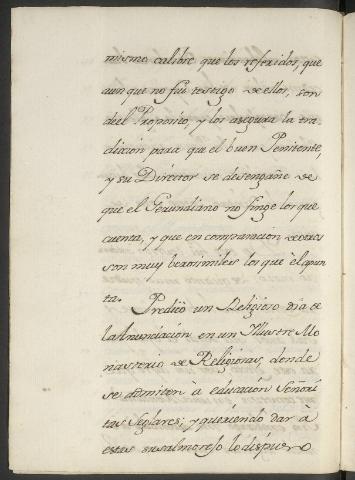 mismo calibre que los referidos, que
aunque no fui testigo de ellos, son
del Proposito, y los asegura la tra
dicion para que el buen Penitente,
y su Director se desengañe de
que el Gerundiano no finge los que
cuenta, y que en comparacion, de otros
son muy berosimiles los que èl apun
ta. Predicò un Religioso dia de
la Anunciacion en un Illustre Mo
nasterio de Religiosas, donde
se admiten à educacion Señori
tas Seglares; y queriendo dar à
estas su salmorejo lo dispuso